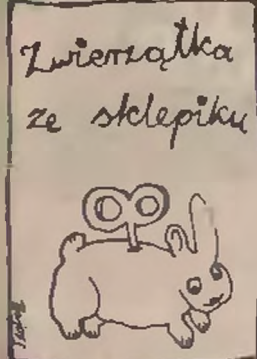 Zwierzątka
ze sklepiku